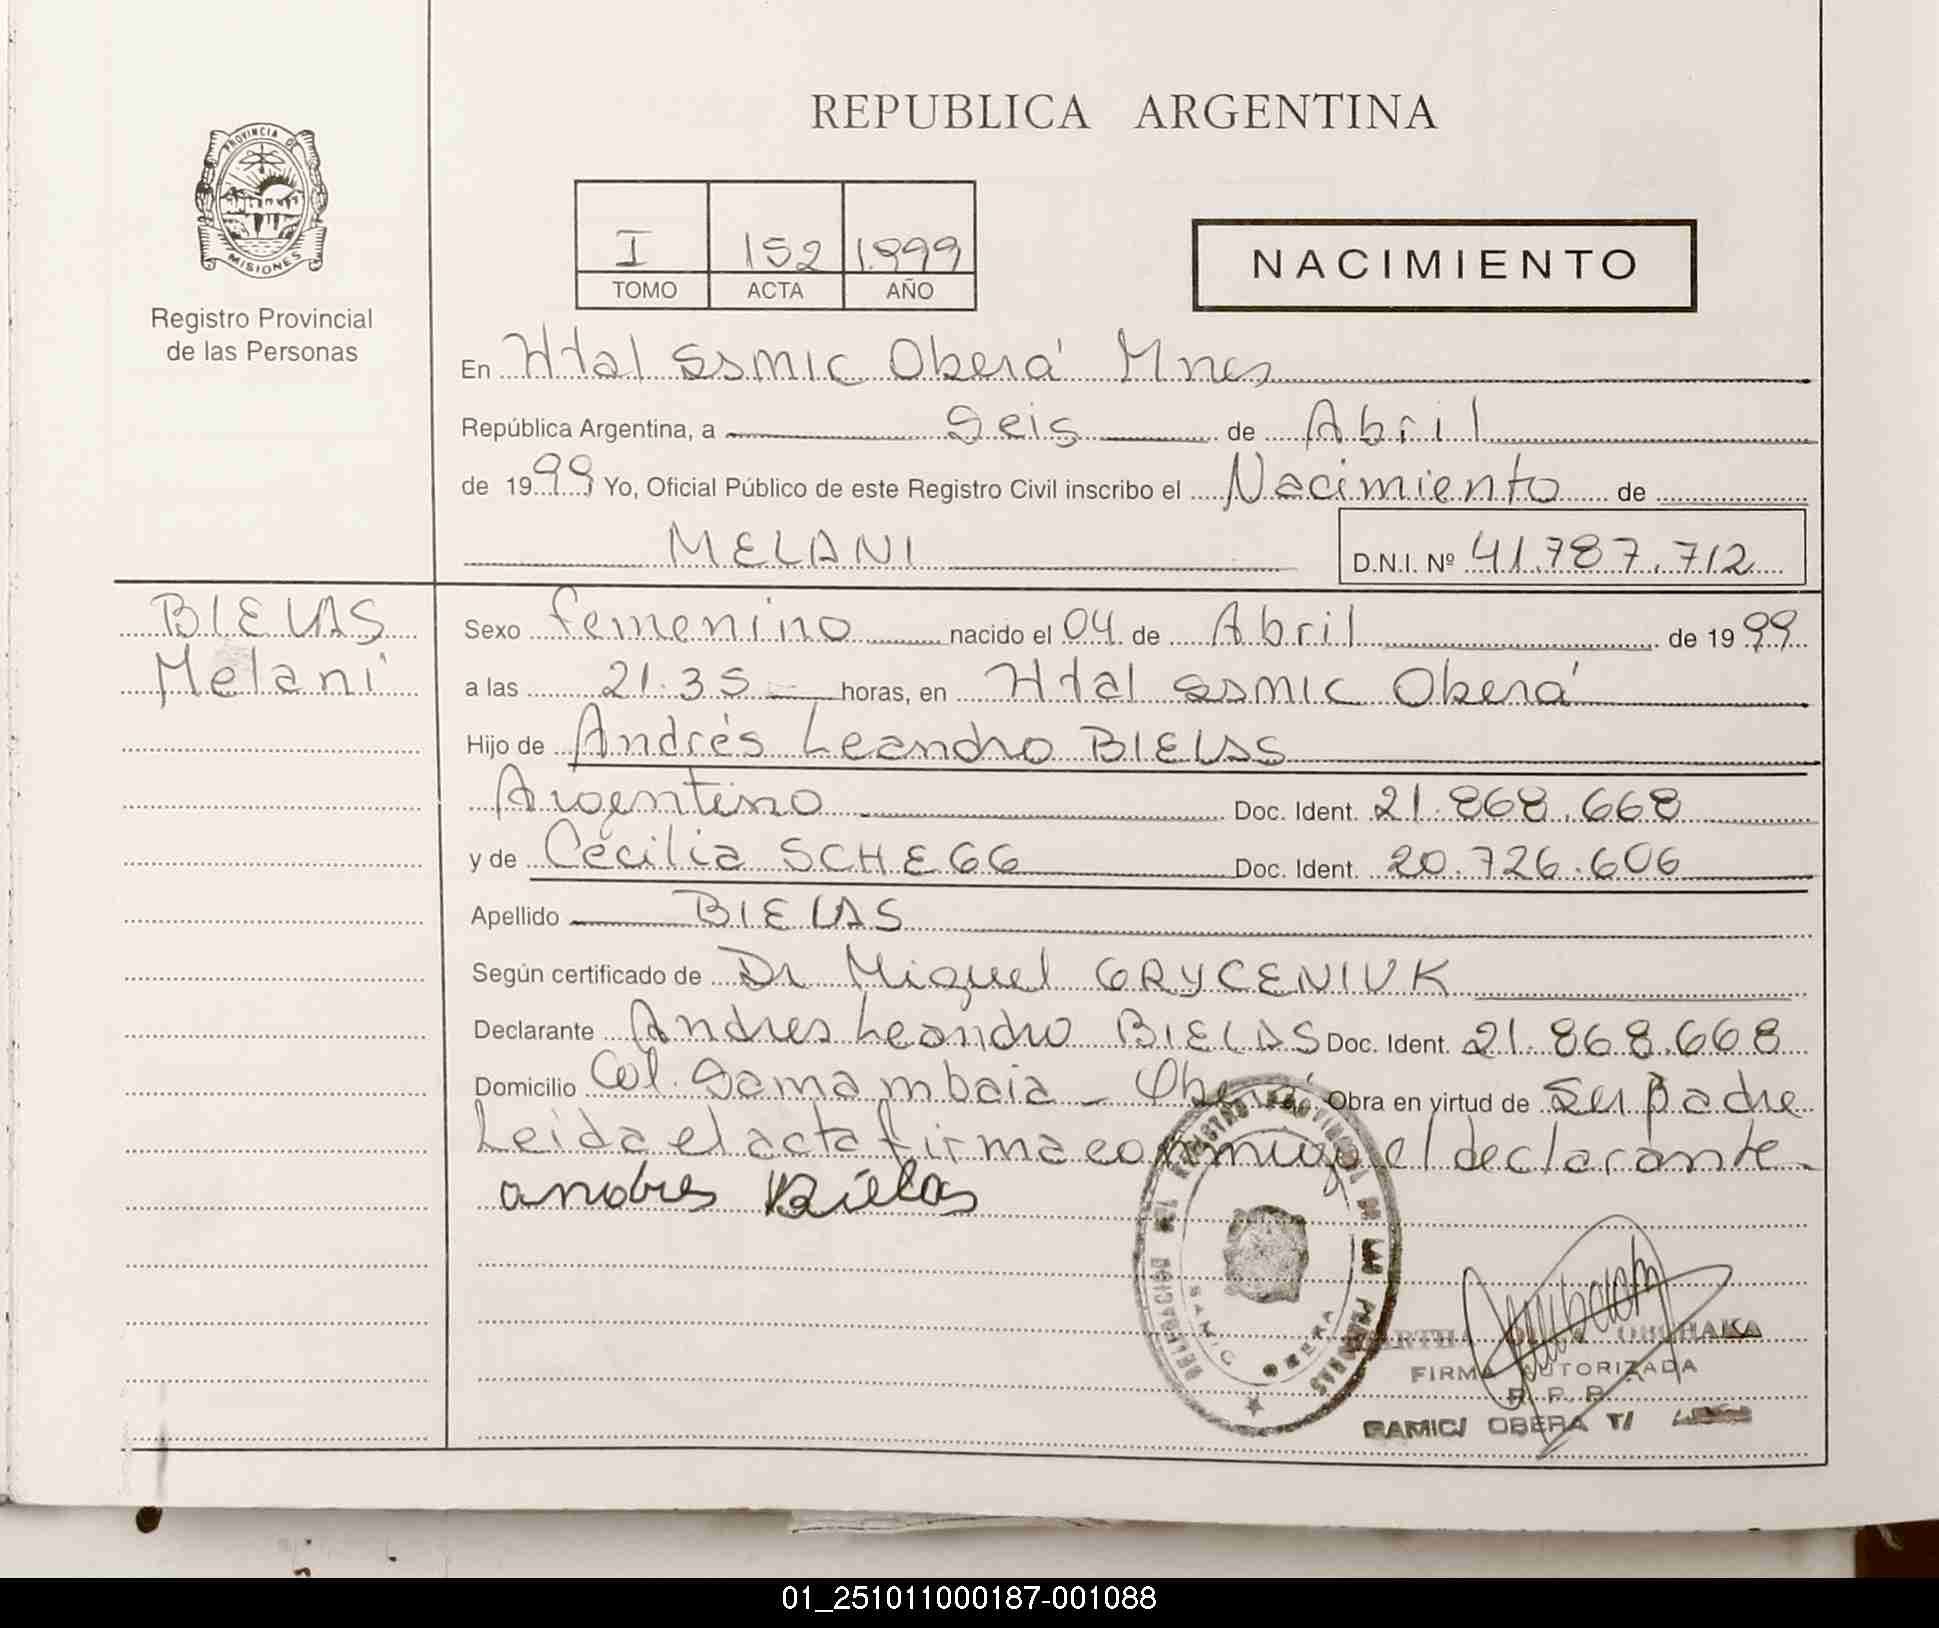 REPUBLICA ARGENTINA
PROVINCIA DE
MISIONES
Registro Provincial
de las Personas
I 152 1.999
TOMO ACTA AÑO
NACIMIENTO
En Htal ssmic Oberá Mnes
República Argentina, a Seis de Abril
de 1999 Yo, Oficial Público de este Registro Civil inscribo el Nacimiento de
MELANI D.N.I. Nº 41.787.712
BIELAS
Melani
Sexo femenino nacido el 04 de Abril de 1999
a las 21.35 horas, en Htal ssmic Oberá
Hijo de Andrés Leandro BIELAS
Argentino Doc. Ident. 21.868.668
y de Cecilia SCHEGG Doc. Ident. 20.726.606
Apellido BIELAS
Según certificado de Dr Miguel GRYCENIUK
Declarante Andres Leandro BIELAS Doc. Ident. 21.868.668
Domicilio Col. Samambaia - Oberá Obra en virtud de ser padre
Leida el acta firma conmigo el declarante
andres Bielas
REGISTRO PROVINCIAL DE LAS PERSONAS
DELEGACION
SAMIC OBERA
FIRMA AUTORIZADA
R. P. P.
SAMIC/ OBERA T/
01_251011000187-001088